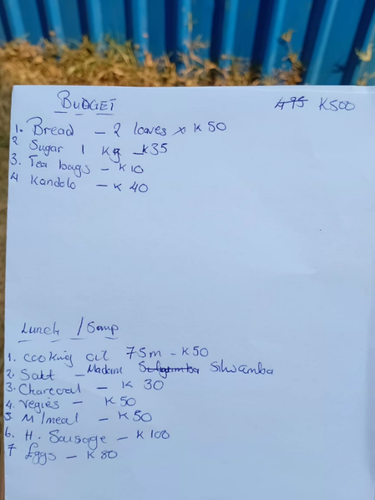 BUDGET 495 K500
1. Bread - 2 loaves x K50
2 Sugar 1 Kg - K35
3. Tea bags - K10
4 Kandolo - K 40
Lunch / Soup
1. cooking oil 75m - K50
2. Salt - Madam Silwamba
3. Charcoal - K 30
4. Vegies - K50
5 M/meal - K50
6. H. Sausage - K100
7 Eggs - K80